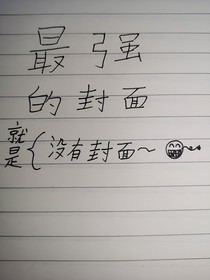 最强
的封面
就是{没有封面~